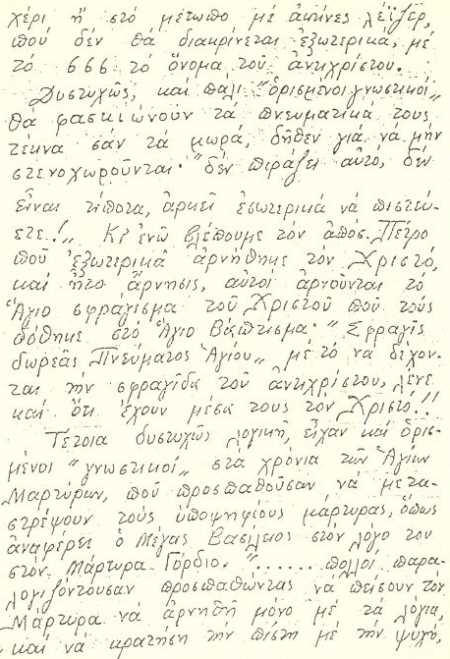 χέρι ἤ στό μέτωπο μέ ἀκτῖνες λέϊζερ,
πού δέν θά διακρίνεται ἐξωτερικά, μέ
τό 666 τό ὄνομα τοῦ ἀντιχρίστου.
Δυστυχῶς, καί πάλι "ὁρισμένοι γνωστικοί"
θά φασκιώνουν τά πνευματικά τους
τέκνα σάν τά μωρά, δῆθεν γιά νά μήν
στενοχωροῦνται· "δέν πειράζει αὐτό, δέν
εἶναι τίποτα, ἀρκεῖ ἐσωτερικά νά πιστεύ-
ετε!" Κι' ἐνῶ βλέπουμε τόν ἀπόσ. Πέτρο
πού ἐξωτερικά ἀρνήθηκε τόν Χριστό,
καί ἦτο ἄρνησις, αὐτοί ἀρνοῦνται τό
Ἅγιο σφράγισμα τοῦ Χριστοῦ πού τούς
δόθηκε στό Ἅγιο Βάπτισμα· "Σφραγίς
δωρεᾶς Πνεύματος Ἁγίου" μέ τό νά δέχον-
ται τήν σφραγῖδα τοῦ ἀντιχρίστου, λένε
καί ὅτι ἔχουν μέσα τους τόν Χριστό!!
Τέτοια δυστυχῶς λογική, εἶχαν καί ὁρισ-
μένοι "γνωστικοί" στά χρόνια τῶν Ἁγίων
Μαρτύρων, πού προσπαθοῦσαν νά μετα-
στρέψουν τούς ὑποψηφίους μάρτυρας, ὅπως
ἀναφέρει ὁ Μέγας Βασίλειος στόν λόγο του
στόν Μάρτυρα Γόρδιο. "......πολλοί παρα-
λογιζόντουσαν προσπαθώντας νά πείσουν τόν
Μάρτυρα νά ἀρνηθῆ μόνο μέ τά λόγια,
καί νά κρατήση τήν πίστη μέ τήν ψυχή,